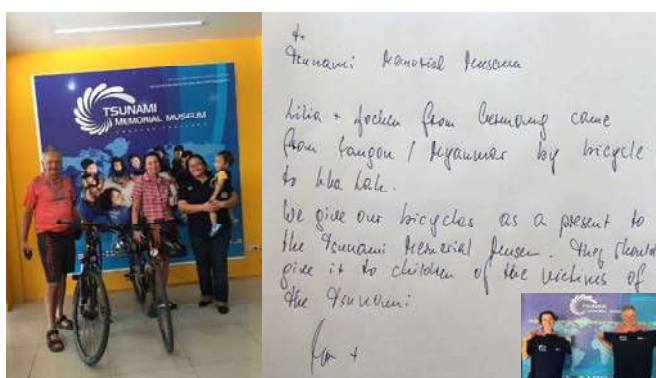 TSUNAMI
MEMORIAL MUSEUM
to
Tsunami Memorial Museum
Lilia + Jochen from Germany came
from Yangon / Myanmar by bicycle
to kha Lak.
We give our bicycles as a present to
the Tsunami Memorial Museum. They should
give it to children of the victims of
the Tsunami
TSUNAMI